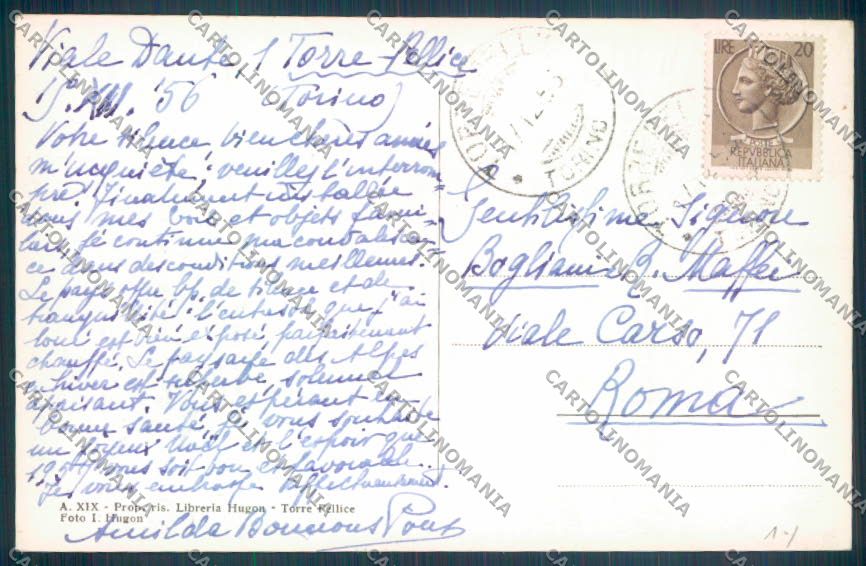 Viale Dante, 1 Torre Pellice
XII. '56 (Torino)
Votre silence, bien chères amies
m'inquiète; veuillez l'interrom-
pre. Finalement installée
dans mes bois et objets fami-
liers je continue ma convalescen-
ce dans des conditions meilleures.
Le pays offre bp. de silence et de
tranquillité: l'entresol que j'ai
loué est bien exposé, parfaitement
chauffé. Le paysage des Alpes
en hiver est superbe, solennel
apaisant. Vous espérant en
bonne santé, je vous souhaite
un joyeux Noël et l'espoir que
1957 vous soit bon et favorable.
Je vous embrasse affectueusement.
Bounous Pont
A. XIX - Prop. ris. Libreria Hugon - Torre Pellice
Foto I. Hugon
LIRE 20
POSTE
REPVBBLICA
ITALIANA
TORINO
Gentilissime Signore
Bogliani B. Maffei
Viale Carso, 71
Roma
CARTOLINOMANIA